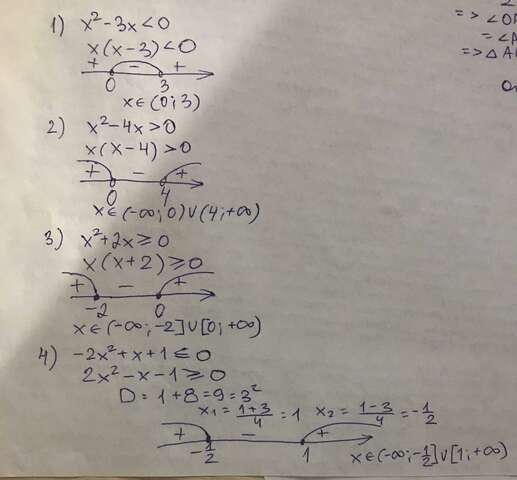 1) x² - 3x < 0
x(x - 3) < 0
+ - +
0 3
x ∈ (0; 3)
2) x² - 4x > 0
x(x - 4) > 0
+ - +
0 4
x ∈ (-∞; 0) ∪ (4; +∞)
3) x² + 2x ≥ 0
x(x + 2) ≥ 0
+ - +
-2 0
x ∈ (-∞; -2] ∪ [0; +∞)
4) -2x² + x + 1 ≤ 0
2x² - x - 1 ≥ 0
D = 1 + 8 = 9 = 3²
x₁ = (1+3)/4 = 1 x₂ = (1-3)/4 = -1/2
+ - +
-1/2 1
x ∈ (-∞; -1/2] ∪ [1; +∞)
=>
=
=> △